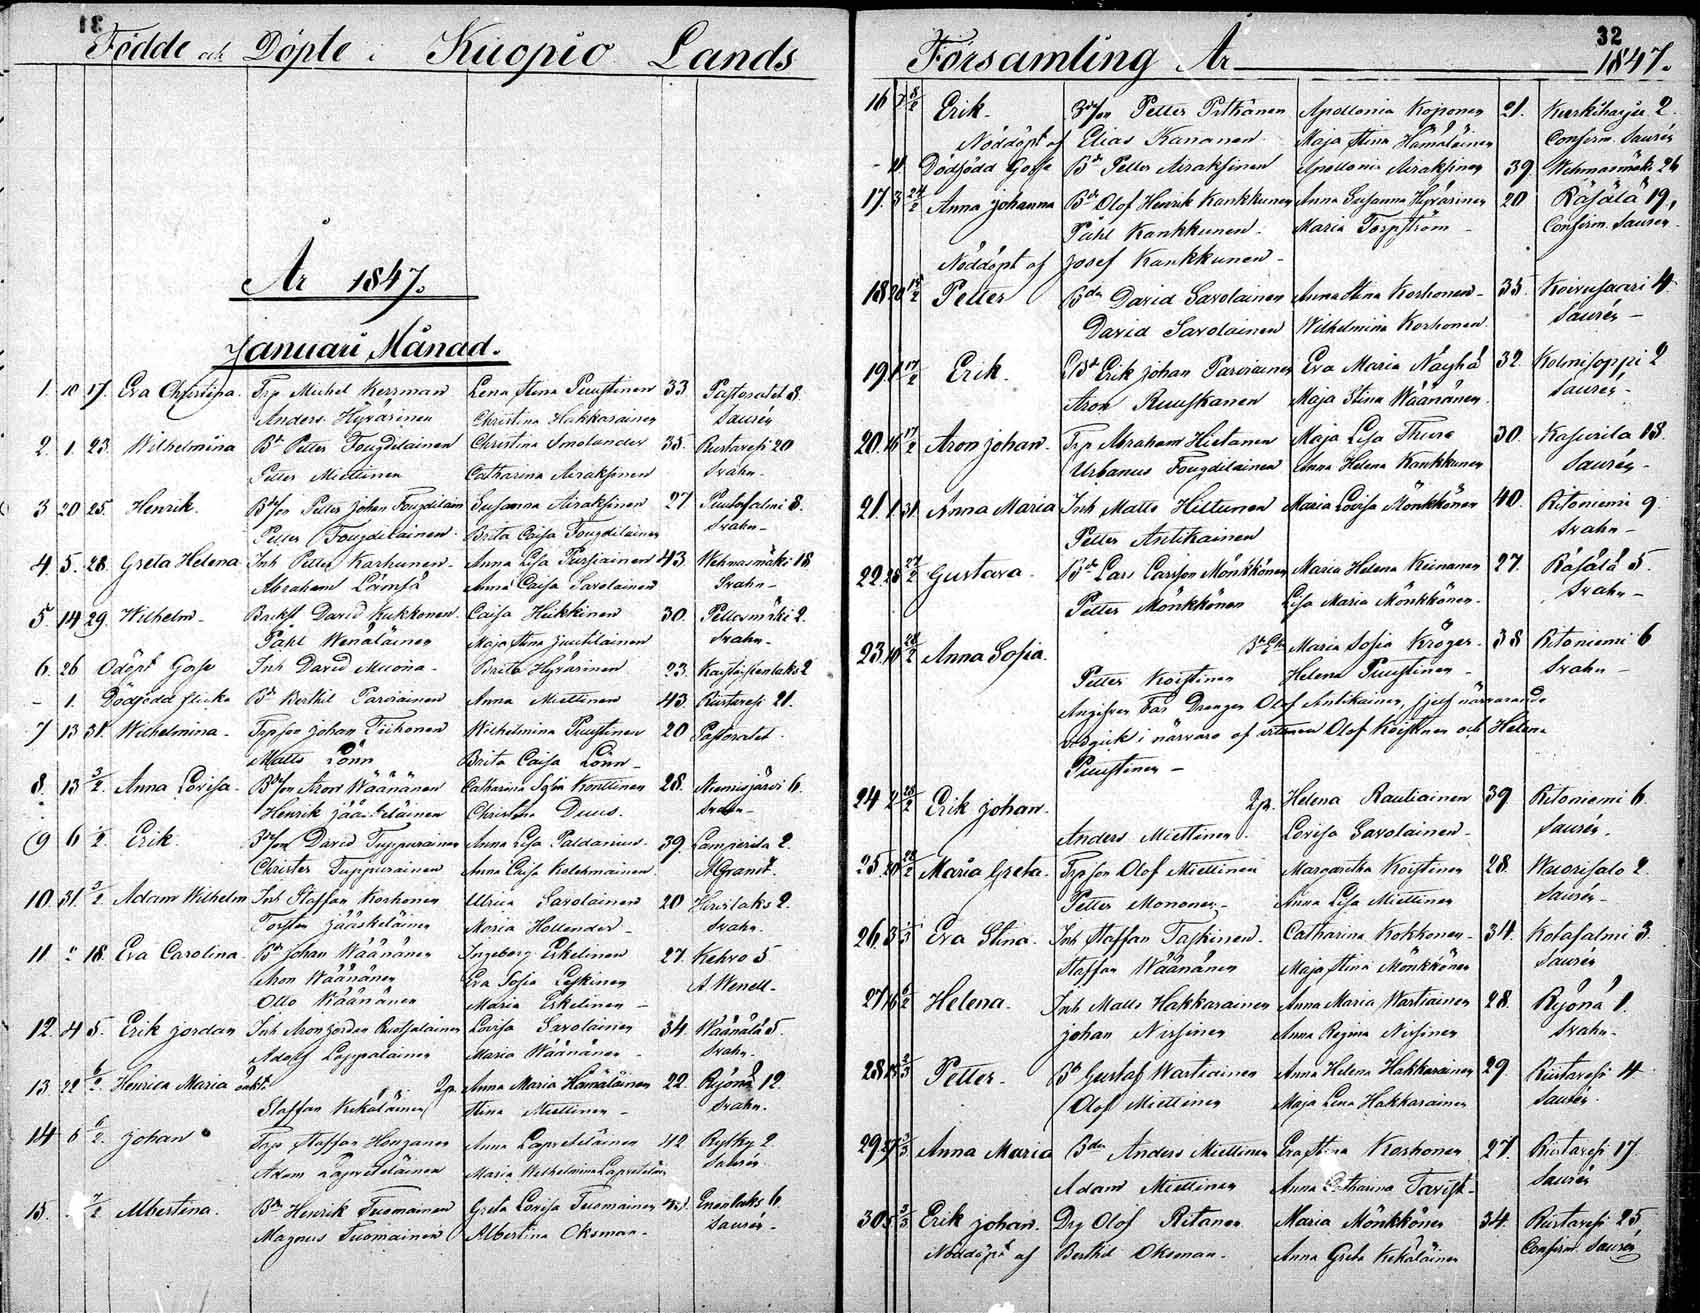 31
Födde och Döpte i Kuopio Lands
År 1847.
Januari Månad.
1. 10 17. Eva Christina. Trp Michel Kerrman Lena Stina Puustinen 33. Pastoratet 8.
Anders Hyvärinen Christina Hakkarainen Saurén
2. 1. 23. Wilhelmina Bd Petter Fougdilainen Christina Smolander 35. Ristavesi 20
Petter Miettinen Catharina Airaksinen Svahn-
3 20 25. Henrik. Petter Johan Fougdilain Susanna Airaksinen 27 8.
Petter Fougdilainen Brita Caisa Fougdilainen Svahn-
4. 5. 28. Greta Helena Inh Petter Korhonen- Anna Lisa Pursiainen 43. Wehmasmäki 18
Abraham Lämsä Anna Caisa Savolainen Svahn-
5. 14 29. Wilhelm- David Kukkonen. Caisa Heikkinen 30. Pellosmäki 2.
Påhl Wenäläinen Maja Stina Juutilainen Svahn-
6. 26 Odöpt Gosse Inh David Muona- Brita Hyvärinen 23. 2
- 1. Dödfödd flicka Bd Berthil Parviainen Anna Miettinen 43. Ristavesi 21.
7 13 31. Wilhelmina- Trpson Johan Tiihonen Wilhelmina Puustinen 20 Pastoratet
Matts Lönn Brita Caisa Lönn-
8. 13 3/2 Anna Lovisa- Aron Wäänänen Catharina Sofia Konttinen 28. Niemisjärvi 6.
Henrik Jääskeläinen Christina Duus. Svahn-
9 6 /2 Erik. David Tuppurainen Anna Lisa Paldanius. 39. Lamperila 2.
Christer Tuppurainen Anna Caisa Kolehmainen A Granit.
10. 31. /2 Adam Wilhelm Inh Staffan Korhonen Ulrica Savolainen 20 Hirvilaks 2.
Torsten Jääskeläinen Maria Hollender- Svahn.
11 18. Eva Carolina. Bd Johan Wäänänen Ingeborg Eskelinen 27. Kehvo 5.
Aron Wäänänen Eva Sofia Leskinen A Wenell-
Otto Wäänänen Maria Eskelinen-
12. 4 5. Erik Jordan Inh Aron Jordan Ruotsalainen Lovisa Savolainen 34 Wäänälä 5.
Adolf Lappalainen Maria Wäänänen- Svahn-
13. 22 6/2. Henrica Maria oäkt 2p. Anna Maria Hämäläinen 22. Ryönä 12.
Staffan Kekäläinen Stina Miettinen- Svahn-
14 6 6/2. Johan Trp Staffan Honganen Anna Lapveteläinen 42 Rytky 2
Adam Lapveteläinen Maria Wilhelmina Saurén
15. 7/2 Albertina. Bdn Henrik Tuomainen Greta Lovisa Tuomainen Enonlaks 6.
Magnus Tuomainen Albertina Oksman. Saurén-
32
Församling År 1847.
16 7 8/2 Erik. Petter Pitkänen Apollonia Koponen 21. Kurkiharju 2.
Nöddöpt af Elias Kananen Maja Stina Hämäläinen Confirm. Saurén
- 11 Dödfödd Gosse Bd Petter Airaksinen Apollonia Airaksinen 39. Wehmasmäki 26
17. 3 /2 Anna Johanna Bd Olof Henrik Kankkunen Anna Susanna Hyvärinen 20 Räsälä 19.
Påhl Kankkunen- Maria Torpström- Confirm. Saurén-
Nöddöpt af Josef Kankkunen-
18 20 /2 Petter Bdn David Savolainen Anna Stina Korhonen- 35. Koivusaari 4.
David Savolainen Wilhelmina Korhonen. Saurén-
19. 1 17/2 Erik. Erik Johan Parviainen Eva Maria Näyhä 32. Kolmisoppi 2
Aron Ruuskanen Maja Stina Wäänänen. Saurén-
20. 16 17/2 Aron Johan. Trp Abraham Hietanen Maja Lisa Thure 30. Kasurila 18.
Urbanus Fougdilainen Anna Helena Kankkunen Saurén-
21. 1 31. Anna Maria Inh Matts Hiltunen Maria Lovisa Mönkkönen 40. Ritoniemi 9.
Petter Antikainen Svahn-
22. 25 27/2 Gustava. Bd Lars Larsson Mönkkönen Maria Helena Keinanen 27. Räsälä 5.
Petter Mönkkönen Lisa Maria Mönkkönen. Svahn-
23. 10 28/2 Anna Sofia. Maria Sofia Kröger- 38 Ritoniemi 6
Petter Koistinen Helena Puustinen- Svahn-
Angifven Far Drengen Olof Antikainen, sjelf närvarande
i närvaro af vittnen Olof Koistinen och Helena
Puustinen-
24 2 28/2 Erik Johan. 2p. Helena Rautiainen 39 Ritoniemi 6.
Anders Miettinen. Lovisa Savolainen- Saurén.
25. 20 28/2 Maria Greta. Trpson Olof Miettinen Margaretha Koistinen 28. Wuorisalo 2.
Petter Mononen- Anna Lisa Miettinen Saurén-
26. 3 /3 Eva Stina. Inh Staffan Taskinen- Catharina Kokkonen- 34. Kotasalmi 3.
Staffan Wäänänen Maja Stina Mönkkönen Saurén
27 16 6/2 Helena. Inh Matts Hakkarainen Anna Maria Wartiainen 28. Ryönä 1.
Johan Nissinen Anna Regina Nissinen Svahn-
28 15 2/3 Petter. Bd Gustaf Wartiainen Anna Helena Hakkarainen 29. Ristavesi 4.
Olof Miettinen Maja Lena Hakkarainen Saurén.
29. 27 3/3 Anna Maria Bdn Anders Miettinen Eva Stina Korhonen 27. Ristavesi 17.
Adam Miettinen Anna Catharina Tavast- Saurén
30. 5 3/3 Erik Johan. Drg Olof Ritanen Maria Mönkkönen 34. Ristavesi 25
Nöddöpt af Berthil Oksman. Anna Greta Kekäläinen Confirm. Saurén